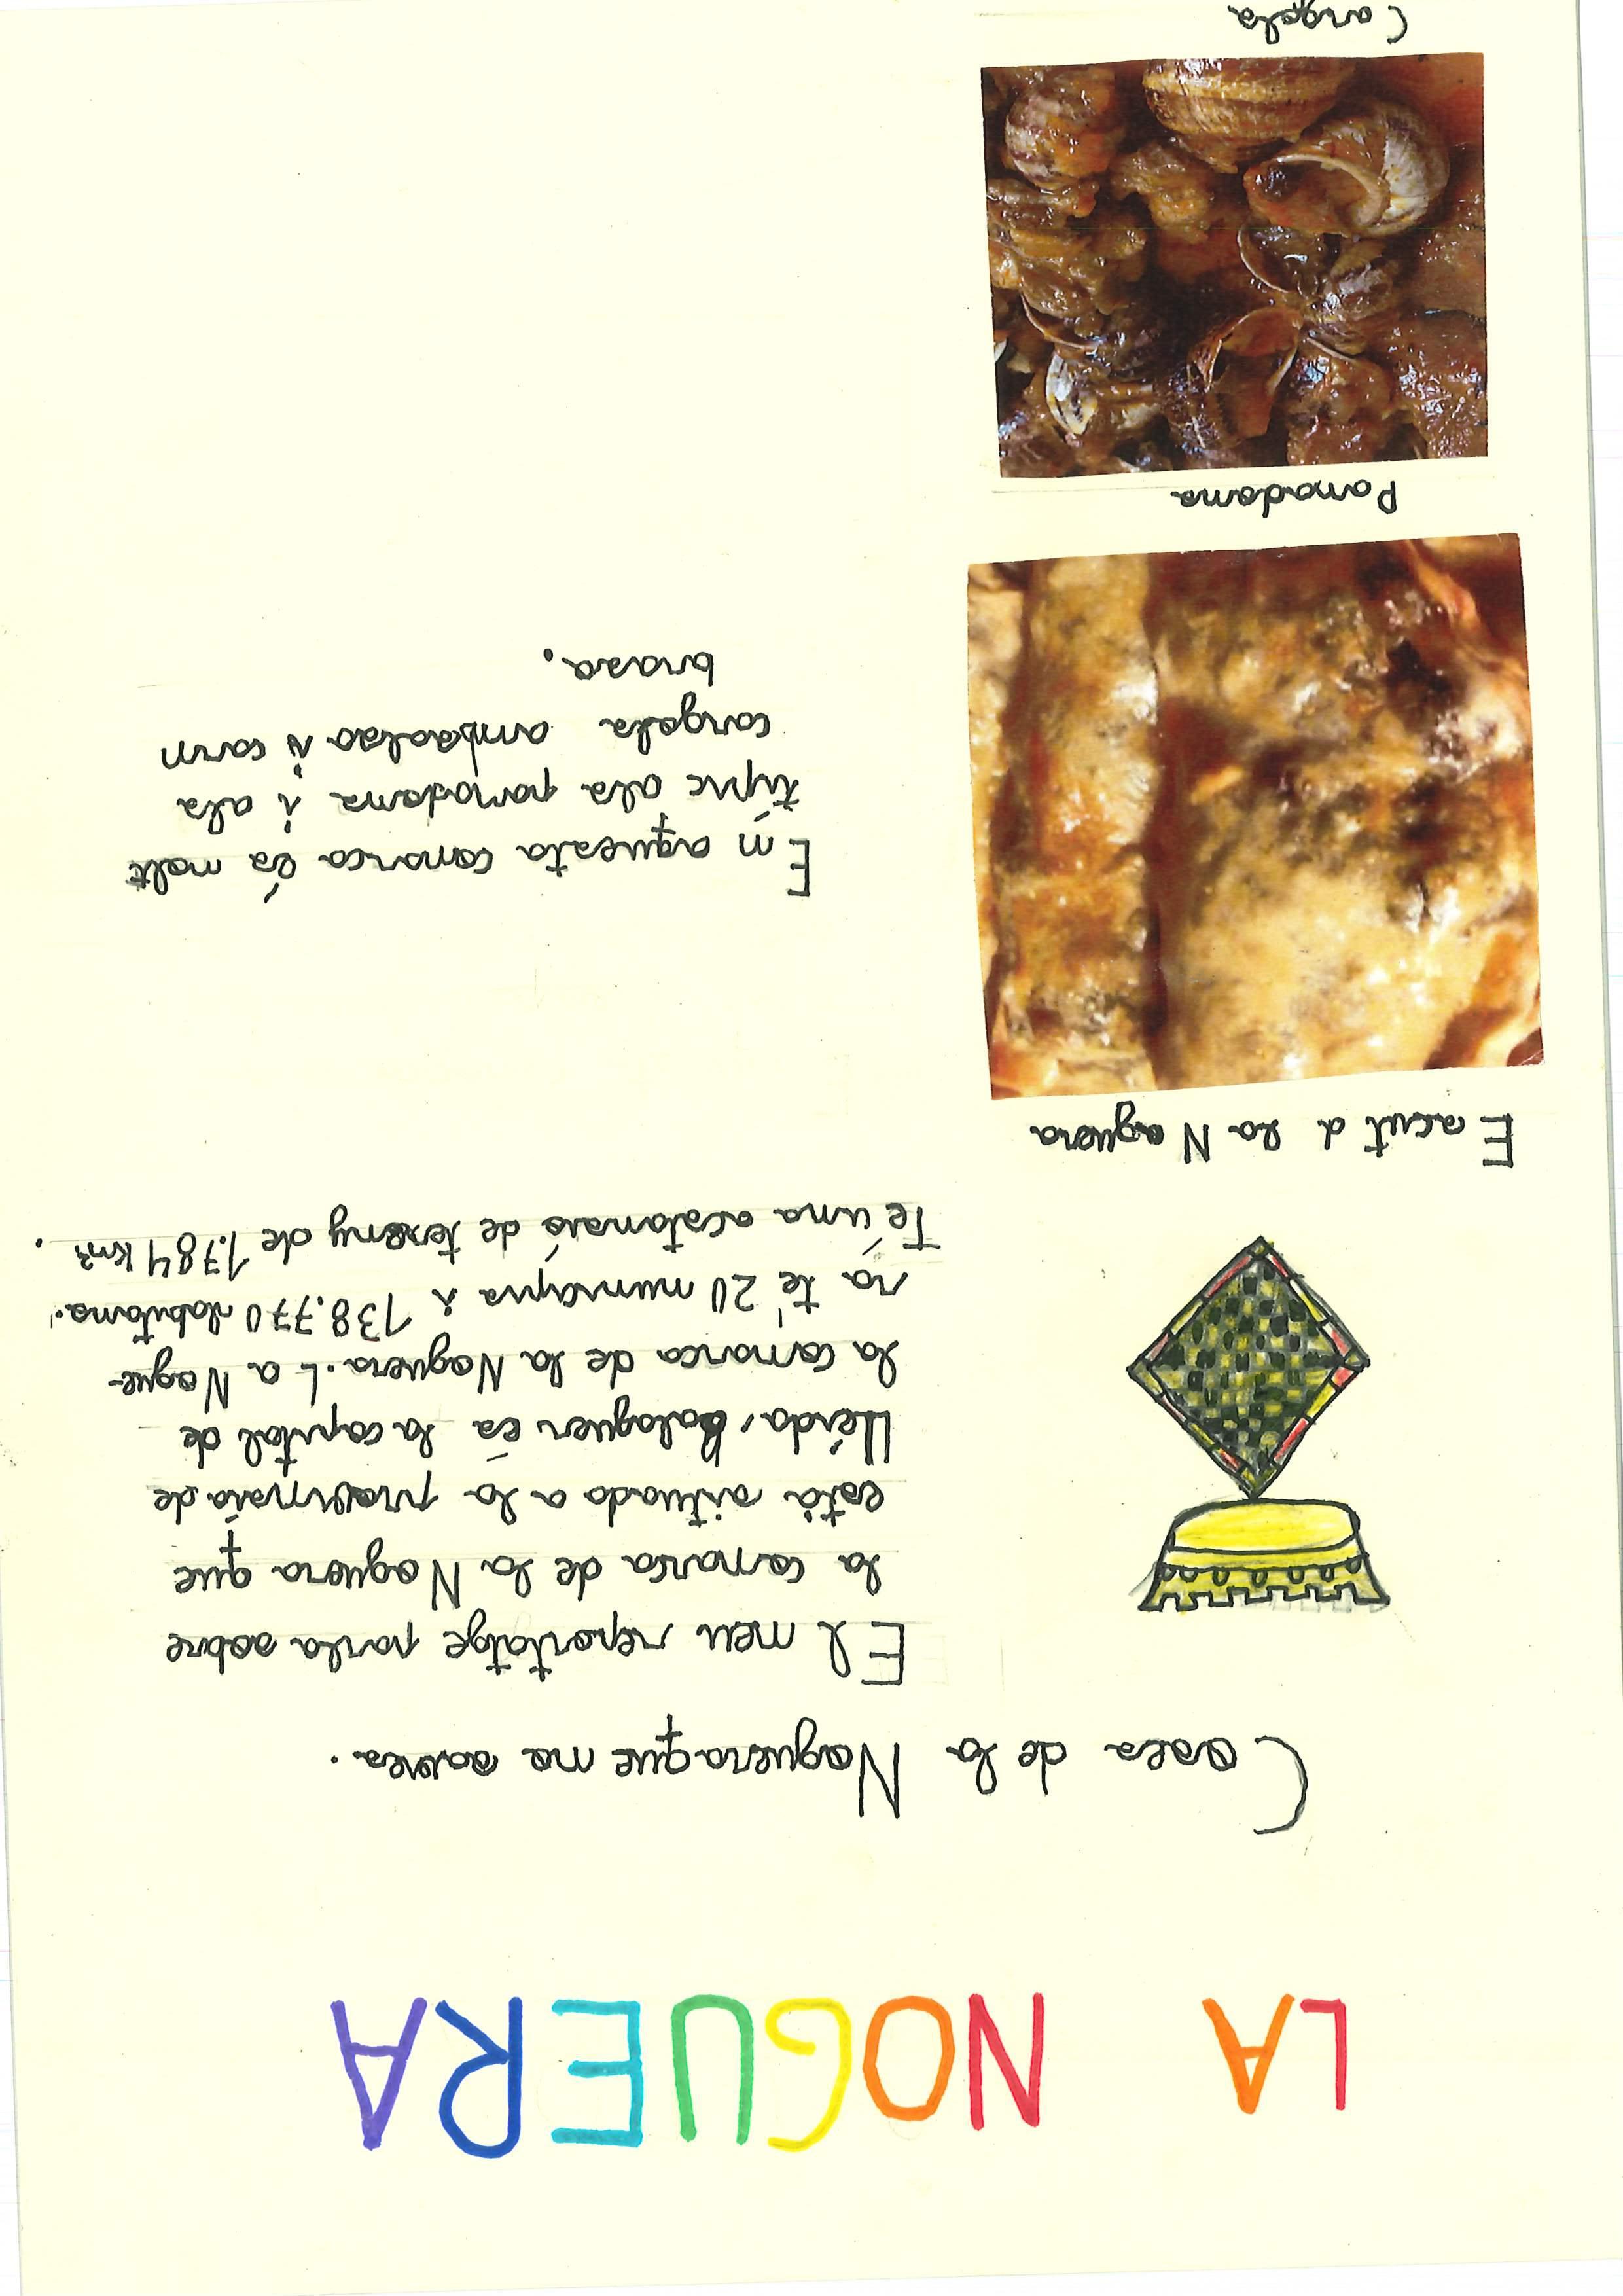 LA NOGUERA
Coses de la Noguera que no sabies.
El meu reportatge parla sobre
la comarca de la Noguera que
està situada a la província de
Lleida, Balaguer és la capital de
la comarca de la Noguera. La Nogue-
ra té 20 municipis i 138.770 habitans.
Té una de terreny de 1.784 km².
Escut d la Noguera
En aquesta comarca és molt
típic els panadons i els
cargols ambsalsa i carn
brasa.
Panadons
Cargols